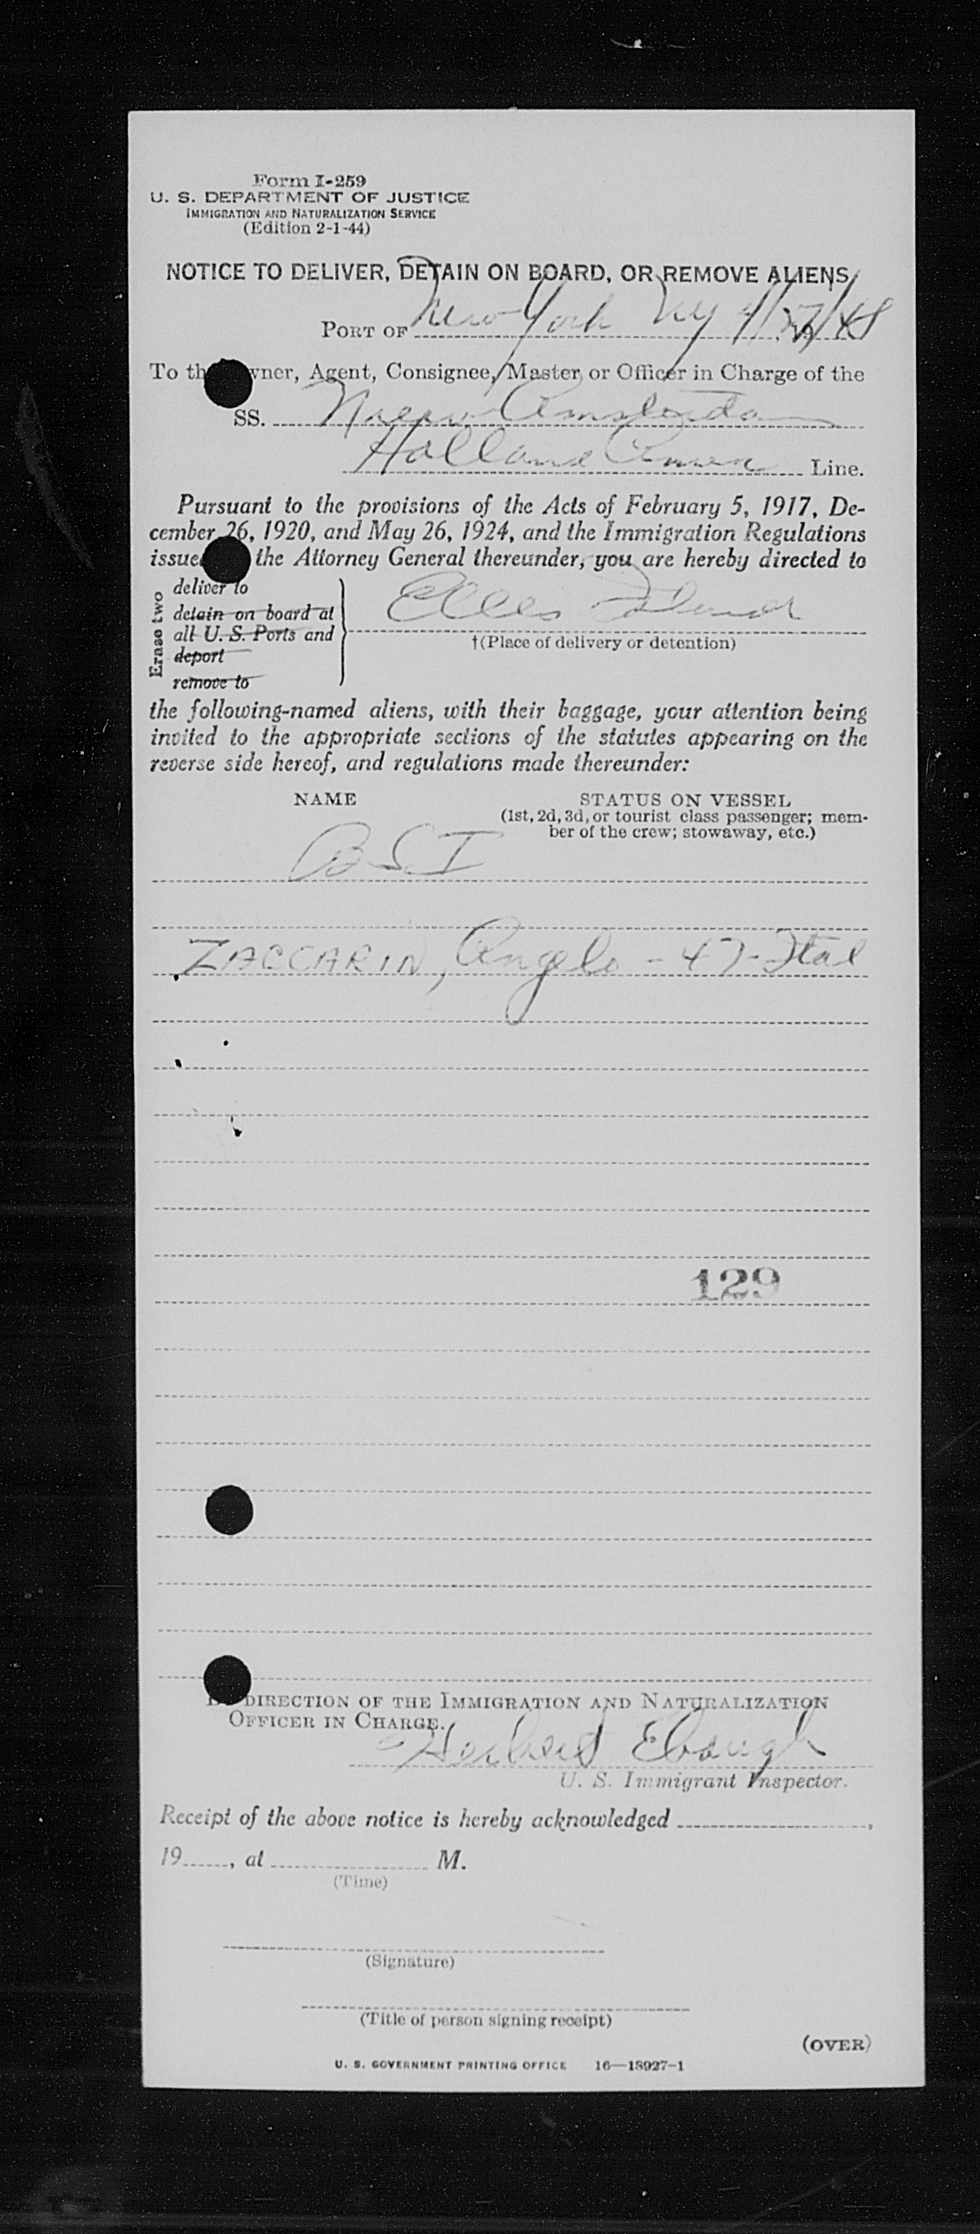 Form I-259
U. S. DEPARTMENT OF JUSTICE
IMMIGRATION AND NATURALIZATION SERVICE
(Edition 2-1-44)
NOTICE TO DELIVER, DETAIN ON BOARD, OR REMOVE ALIENS
PORT OF New York NY 4/27/48
To the Owner, Agent, Consignee, Master or Officer in Charge of the
SS. Nieuw Amsterdam
Holland Amer Line.
Pursuant to the provisions of the Acts of February 5, 1917, De-
cember 26, 1920, and May 26, 1924, and the Immigration Regulations
issued the Attorney General thereunder, you are hereby directed to
Erase two
deliver to
detain on board at
all U. S. Ports and
deport
remove to
Ellis Island
†(Place of delivery or detention)
the following-named aliens, with their baggage, your attention being
invited to the appropriate sections of the statutes appearing on the
reverse side hereof, and regulations made thereunder:
NAME STATUS ON VESSEL
(1st, 2d, 3d, or tourist class passenger; mem-
ber of the crew; stowaway, etc.)
BSI
ZACCARIN, Angelo - 47 - Ital
129
BY DIRECTION OF THE IMMIGRATION AND NATURALIZATION
OFFICER IN CHARGE.
Herbert Ebaugh
U. S. Immigrant Inspector.
Receipt of the above notice is hereby acknowledged ,
19 , at M.
(Time)
(Signature)
(Title of person signing receipt)
(OVER)
U. S. GOVERNMENT PRINTING OFFICE 16—18927-1